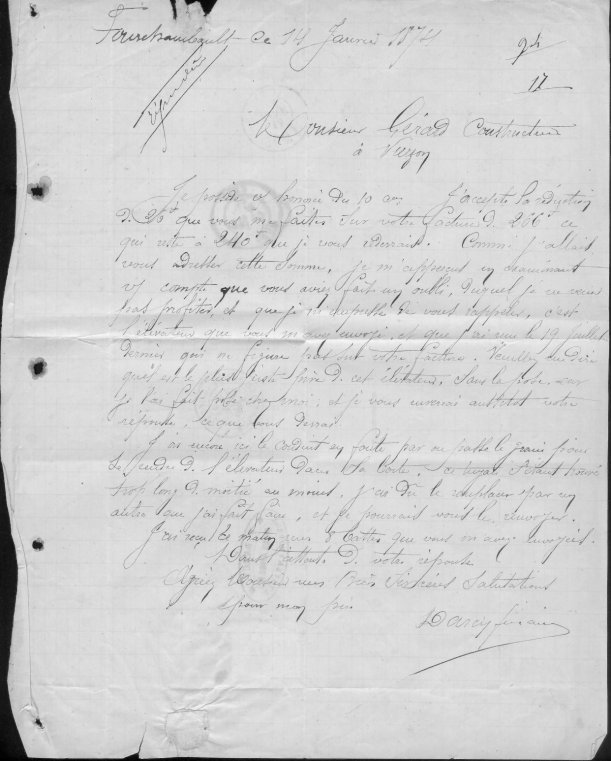 Fourchambault ce 14 Janvier 1874
répondu
17
Monsieur Gérard Constructeur
à Vierzon
Je possède v/ honorée du 10 J'accepte la réduction
d. 26f que vous me faites sur votre facture d. 266f ce
qui reste à 240f que je vous devrais. Comme j'allais
vous adresser cette somme, je m'apperçus en examinant
v/ compte que vous aviez fait un oubli, duquel je ne veux
pas profiter, et que je m'empresse de vous rappeler, c'est
l'élévateur que vous m'avez envoyé, et que j'ai reçu le 19 Juillet
dernier qui ne figure pas sur votre facture. Veuillez me dire
quel est le plus juste prix d. cet élévateur, sans la pose, car
je l'ai fait poser chez moi, et je vous enverrai aussitôt votre
réponse, ce que vous devrai.
J'ai encore ici le conduit en fonte par où passe le grain pour
se rendre d. l'élévateur dans la ce tuyau s'étant trouvé
trop long d. moitié au moins, j'ai dû le remplacer par un
autre que j'ai fait faire, et je pourrais vous le renvoyer.
J'ai reçu ce matin mes 8 cartes que vous m'avez envoyées.
Dans l'attente d. votre réponse
Agréez Monsieur mes Très Sincères Salutations
pour mon père
Darcy